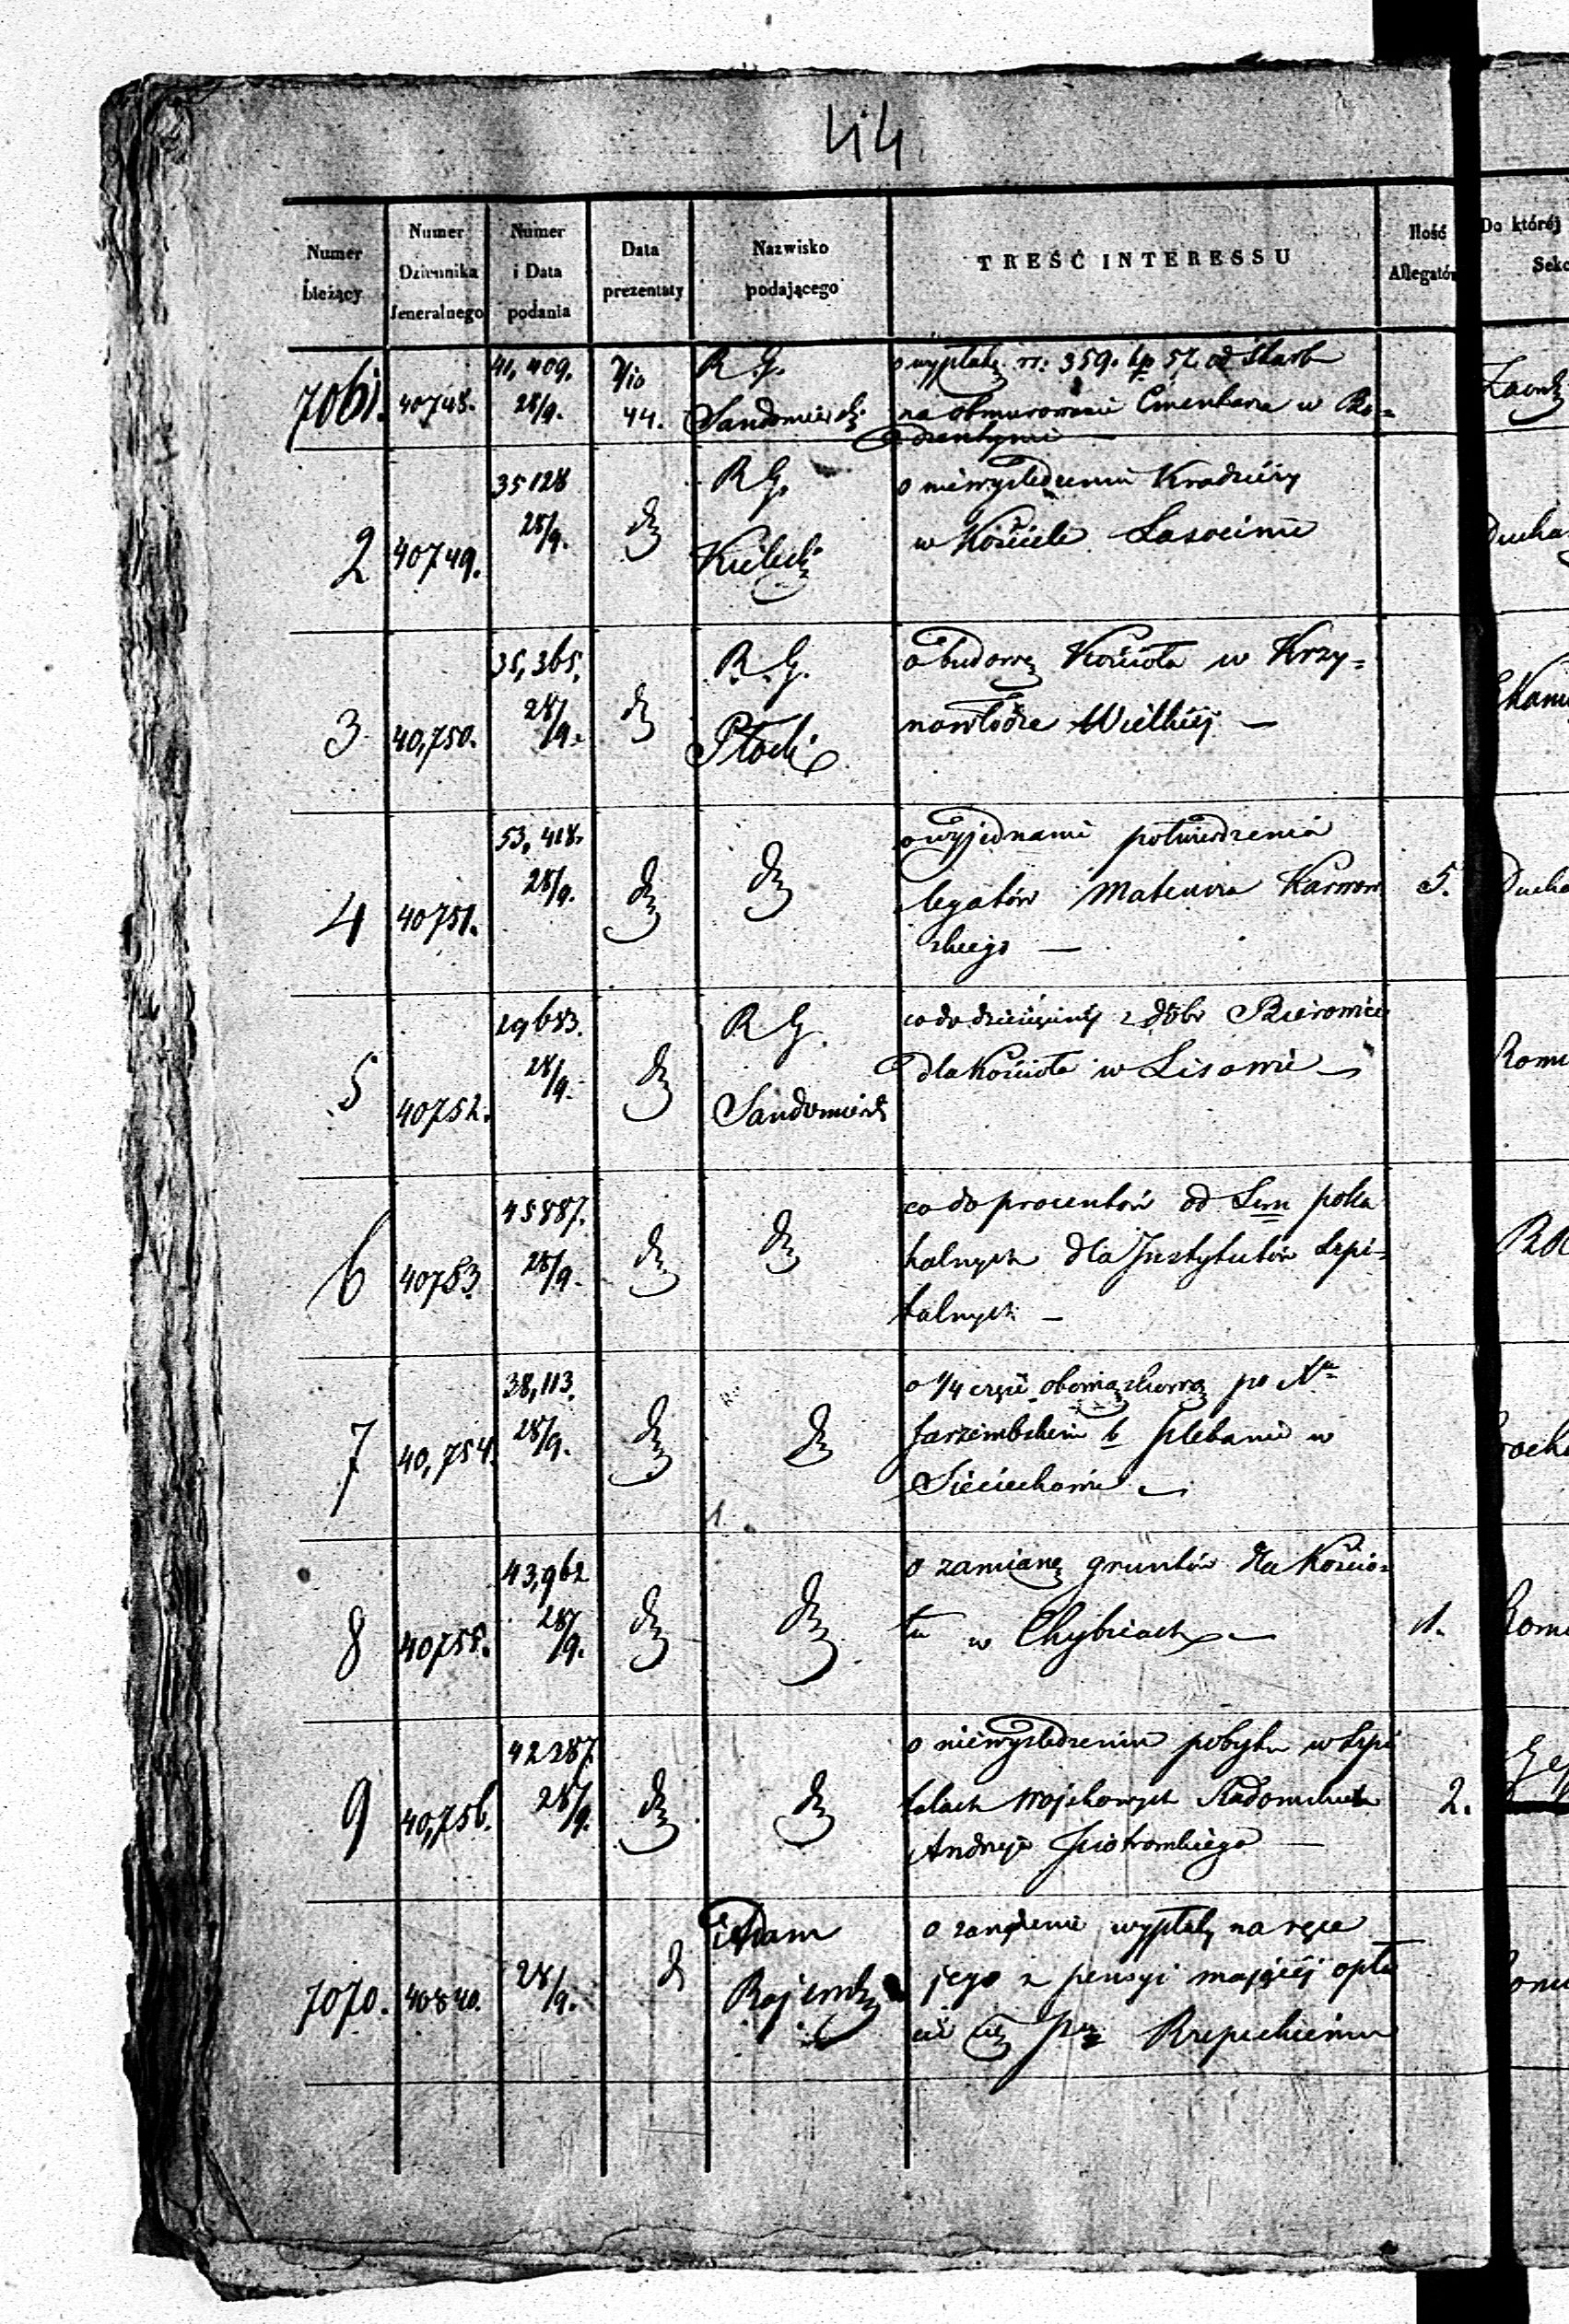 44
Numer bieżący
Numer Dziennika Jeneralnego
Numer i Data podania
Data prezentaty
Nazwisko podającego
TREŚĆ INTERESSU
Ilość Allegatów
Do którój
7061. 40748. 41,409. 28/9. 2/10 44. R. G. Sandomierski o wypłatę rs: 359. kp 57. od Skarbu
na obmurowanie Cmentarza w Bo=
dzentynie —
2 40749. 35128 28/9. R G. Kielecki o niewyśledzeniu Kradzieży
w Kościele Łasocinie
3 40,750. 35,365. 28/9. R. G. Płocki o budowę Kościoła w Krzy=
nowłodze Wielkiéj —
4 40751. 53,418. 28/9. o wyjednanie potwierdzenia 5.
legatów Mateusza Karnow
skiego —
5 40752. 29653. 28/9. R G. Sandomierski co do dziesięciny z dóbr
dla Kościoła w Lisowie —
6 40753. 45887. 28/9. co do procentów od Sum
dla Instytutów Szpi=
talnych —
7 40,754. 38,113. 28/9. o 1/4 część obowiązkową po Xs
Jarzembskim b Plebanie w
Sieciechowie —
8 40755. 43,962 28/9. o zamianę gruntów dla Kościo= 1.
ła w Chybicach —
9 40,756. 42287. 28/9. o niewyśledzeniu pobytu w Szpi 2.
talach Wojskowych Radomskich
Andrzeja Piotrowskiego —
7070. 40840. 28/9. Adam o wypłaty na ręce
jego z pensyi mającéj opła
cać się Rzepeckiemu